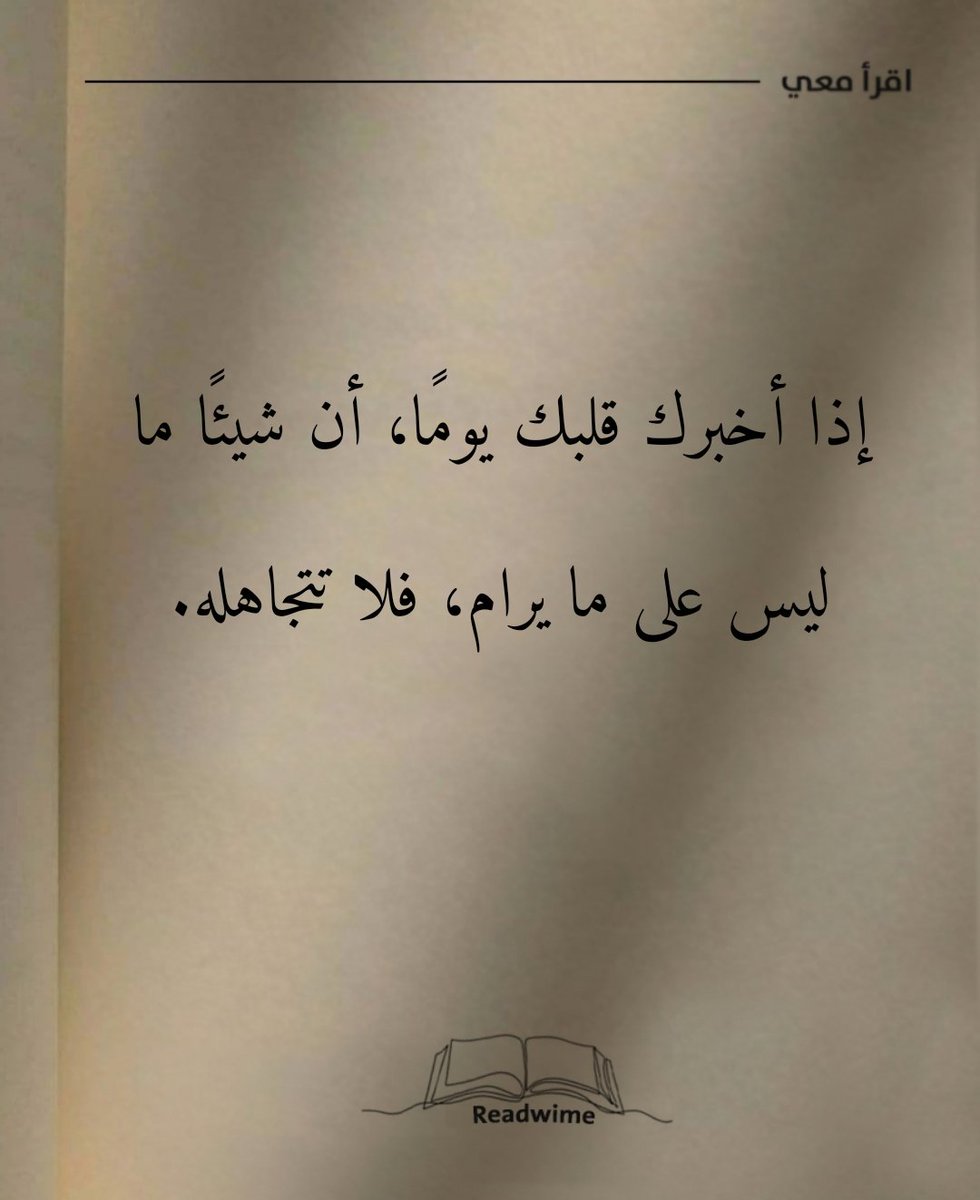 اقرأ معي
إذا أخبرك قلبك يومًا، أن شيئًا ما
ليس على ما يرام، فلا تتجاهله.
Readwime